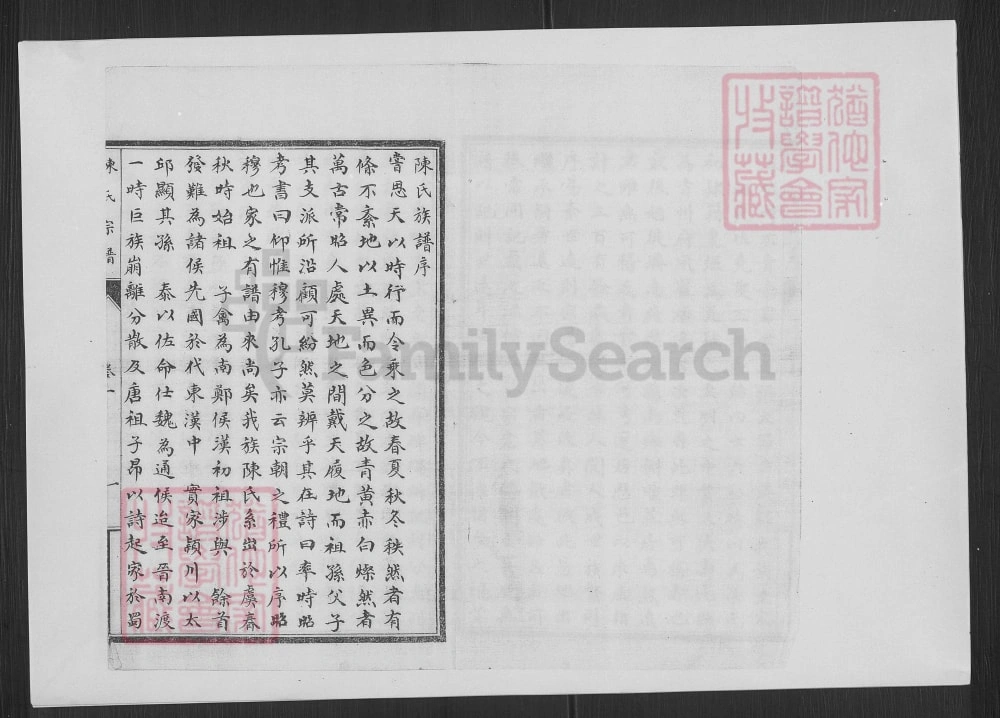 陳氏族譜序
嘗思天以時行而令乘之故春夏秋冬秩然者有
條不紊地以土異而色分之故青黃赤白燦然者
萬古常昭人處天地之間戴天履地而祖孫父子
其支派所沿顧可紛然莫辨乎其在詩曰率時昭
考書曰仰惟穆考孔子亦云宗朝之禮所以序昭
穆也家之有譜由來尚矣我族陳氏系出於虞春
秋時始祖 子禽為南鄭侯漢初祖涉與 餘首
發難為諸侯先國於代東漢中 實家潁川以太
邱顯其孫 泰以佐命仕魏為通侯迨至晉南渡
一時巨族崩離分散及唐祖子昂以詩起家於蜀
陳氏宗譜 卷一 一
猶他家
譜學會
收藏
猶他家
譜學會
收藏
FamilySearch